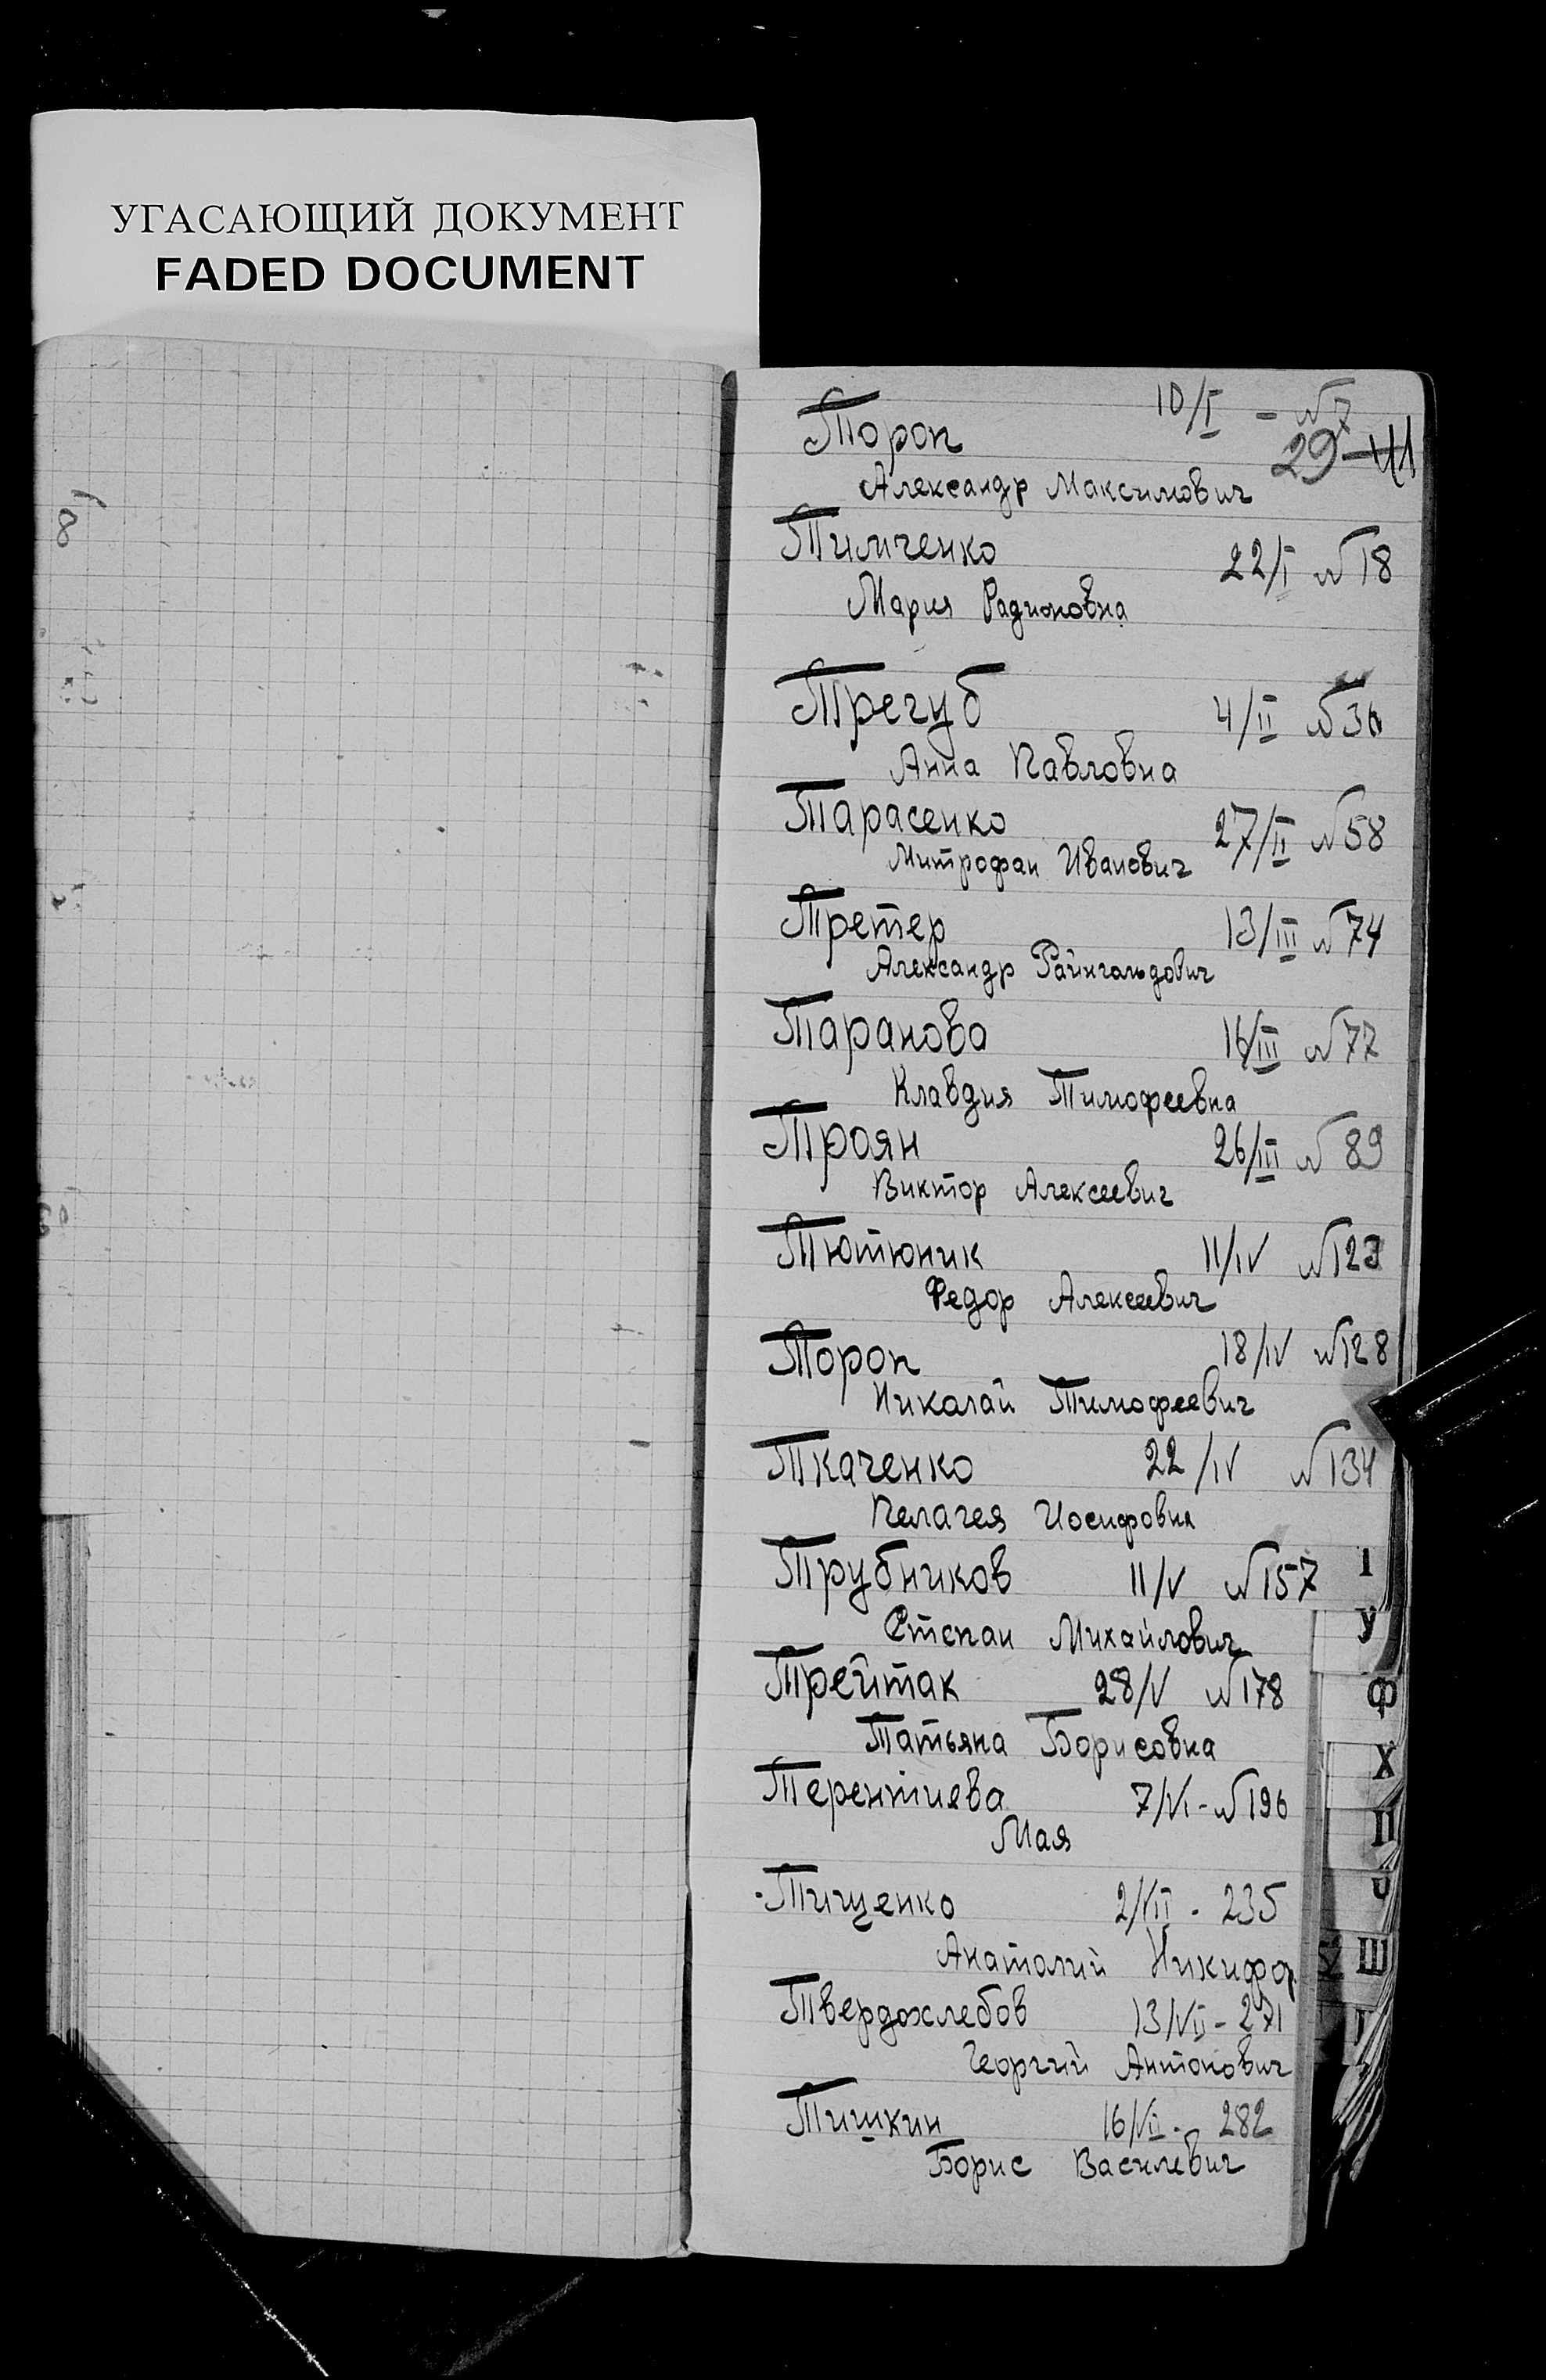 УГАСАЮЩИЙ ДОКУМЕНТ
FADED DOCUMENT
10/I - №7
Тороп 29
Александр Максимович
Тимченко 22/I №18
Мария Радионовна
Трегуб 4/II №36
Анна Павловна
Тарасенко 27/II №58
Митрофан Иванович
Третер 13/III №74
Александр Райнгальдович
Таранова 16/III №77
Клавдия Тимофеевна
Троян 26/III №89
Виктор Алексеевич
Тютюник 11/IV №123
Федор Алексеевич
Тороп 18/IV №128
Николай Тимофеевич
Ткаченко 22/IV №134
Пелагея Иосифовна
Трубников 11/V №157
Степан Михайлович
Трейтак 28/V №178
Татьяна Борисовна
Терентиева 7/VI - №196
Мая
Тищенко 2/VII - 235
Анатолий Никифор.
Твердохлебов 13/VII - 271
Георгий Антонович
Тишкин 16/VII - 282
Борис Василевич
У
Ф
Х
Ш